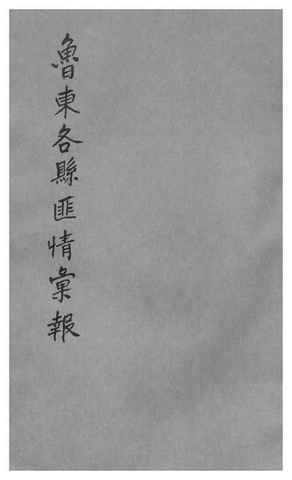 魯東各縣匪情彙報